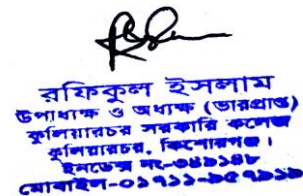 রফিকুল ইসলাম
উপাধ্যক্ষ ও অধ্যক্ষ (ভারপ্রাপ্ত)
কুলিয়ারচর সরকারি কলেজ
কুলিয়ারচর, কিশোরগঞ্জ।
ইনডেক্স নং-৩৪৯১৪৮
মোবাইল-০১৭১১-৯৫৭৯১৯